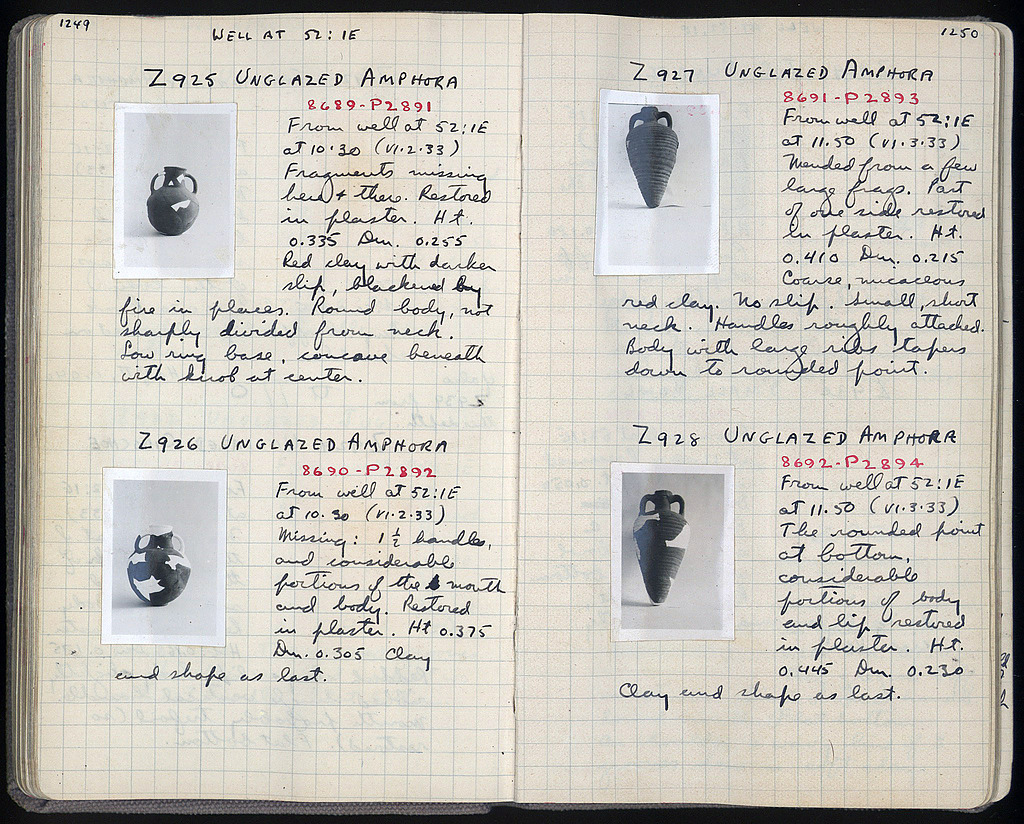 1249
WELL AT 52:1E
Z925 UNGLAZED AMPHORA
8689-P2891
From well at 52:1E
at 10.30 (VI.2.33)
Fragments missing
here & there. Restored
in plaster. Ht.
0.335 Dm. 0.255
Red clay with darker
slip, blackened by
fire in places. Round body, not
sharply divided from neck.
Low ring base, concave beneath
with knob at center.
Z926 UNGLAZED AMPHORA
8690-P2892
From well at 52:1E
at 10.30 (VI.2.33)
Missing: 1 1/2 handles,
and considerable
portions of the mouth
and body. Restored
in plaster. Ht 0.375
Dm. 0.305 Clay
and shape as last.
1250
Z927 UNGLAZED AMPHORA
8691-P2893
From well at 52:1E
at 11.50 (VI.3.33)
Mended from a few
large frags. Part
of one side restored
in plaster. Ht.
0.410 Dm. 0.215
Coarse, micaceous
red clay. No slip. Small, short
neck. Handles roughly attached.
Body with large ribs tapers
down to rounded point.
Z928 UNGLAZED AMPHORA
8692-P2894
From well at 52:1E
at 11.50 (VI.3.33)
The rounded point
at bottom,
considerable
portions of body
and lip restored
in plaster. Ht.
0.445 Dm. 0.230
Clay and shape as last.